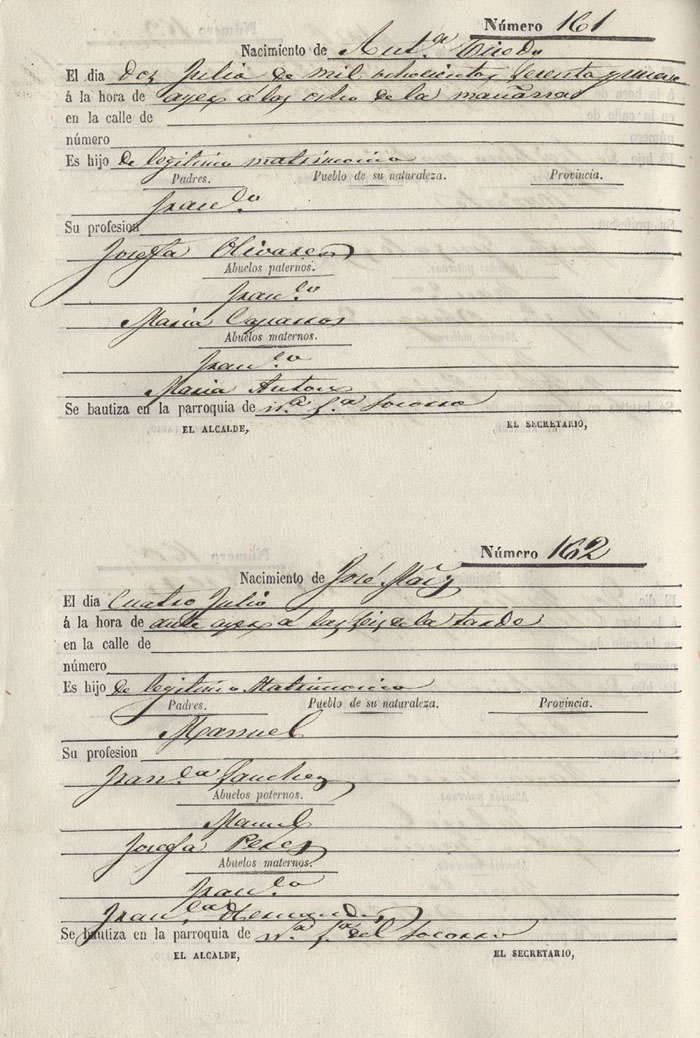 Número 161
Nacimiento de Ant.ª
El dia dos Julio de mil ochocientos
á la hora de ayer a las ocho de la mañana
en la calle de
número
Es hijo de legitimo matrimonio
Padres. Pueblo de su naturaleza. Provincia.
Fran.co
Su profesion
Josefa Olivares
Abuelos paternos.
Fran.co
Maria Caparros
Abuelos maternos.
Fran.co
Maria Anton
Se bautiza en la parroquia de N.ª S.ª Socorro
EL ALCALDE, EL SECRETARIO,
Número 162
Nacimiento de José
El dia Cuatro Julio
á la hora de ante ayer a las seis de la tarde
en la calle de
número
Es hijo de legitimo Matrimonio
Padres. Pueblo de su naturaleza. Provincia.
Manuel
Su profesion
Fran.ca Sanchez
Abuelos paternos.
Manuel
Josefa Perez
Abuelos maternos.
Fran.co
Fran.ca Hernandez
Se bautiza en la parroquia de N.ª S.ª del Socorro
EL ALCALDE, EL SECRETARIO,